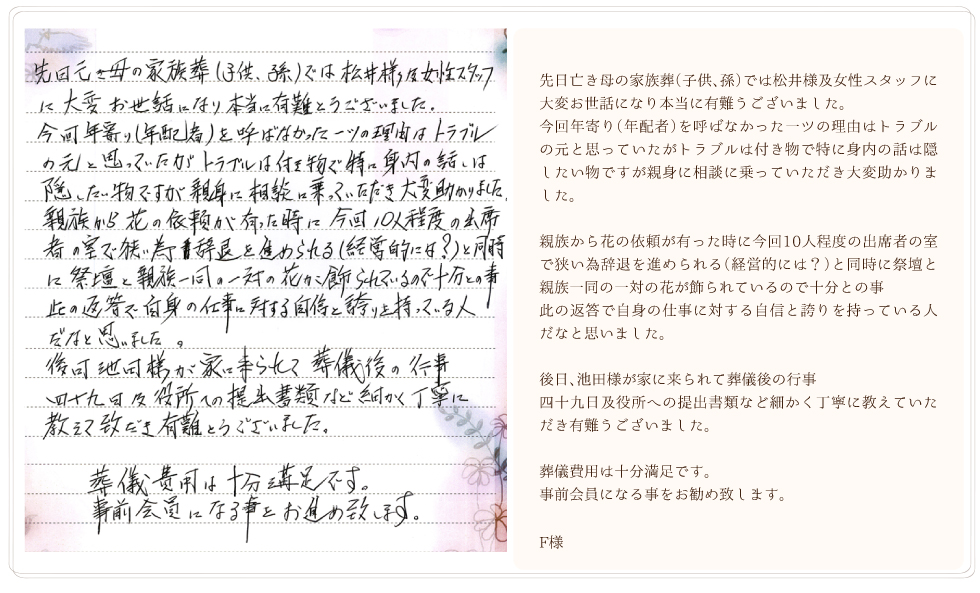 先日亡き母の家族葬(子供、孫)では松井様及女性スタッフ
に大変お世話になり本当に有難とうございました。
今回年寄り(年配者)を呼ばなかった一ツの理由はトラブル
の元と思っていたがトラブルは付き物で特に身内の話しは
隠したい物ですが親身に相談に乗っていただき大変助かりました。
親族から花の依頼が有った時に今回10人程度の出席
者の室で狭い為辞退を進められる(経営的には?)と同時
に祭壇と親族一同の一対の花が飾られているので十分との事
此の返答で自身の仕事に対する自信と誇りを持っている人
だなと思いました。
後日池田様が家に来られて葬儀後の行事
四十九日及役所への提出書類など細かく丁寧に
教えて致だき有難とうございました。
葬儀費用は十分満足です。
事前会員になる事をお進め致します。
先日亡き母の家族葬(子供、孫)では松井様及女性スタッフに
大変お世話になり本当に有難うございました。
今回年寄り(年配者)を呼ばなかった一ツの理由はトラブル
の元と思っていたがトラブルは付き物で特に身内の話は隠
したい物ですが親身に相談に乗っていただき大変助かりま
した。
親族から花の依頼が有った時に今回10人程度の出席者の室
で狭い為辞退を進められる(経営的には?)と同時に祭壇と
親族一同の一対の花が飾られているので十分との事
此の返答で自身の仕事に対する自信と誇りを持っている人
だなと思いました。
後日、池田様が家に来られて葬儀後の行事
四十九日及役所への提出書類など細かく丁寧に教えていた
だき有難うございました。
葬儀費用は十分満足です。
事前会員になる事をお勧め致します。
F様